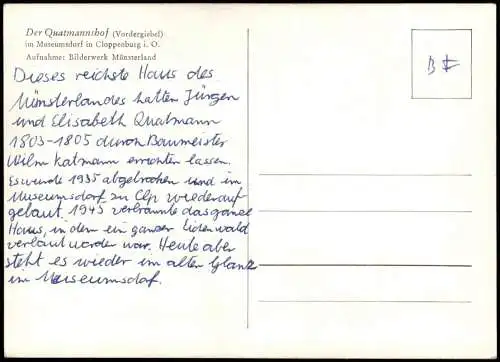 Der Quatmannshof (Vordergiebel)
im Museumsdorf in Cloppenburg i. O.
Aufnahme: Bilderwerk Münsterland
Dieses reichste Haus des
Münsterlandes hatten Jürgen
und Elisabeth Quatmann
1803-1805 durch Baumeister
Wilm Katmann errichten lassen.
Es wurde 1935 abgebrochen und im
Museumsdorf zu Clp wiederauf-
gebaut. 1945 verbrannte das ganze
Haus, in dem ein ganzer Eichenwald
verbaut worden war. Heute aber
steht es wieder im alten Glanz
im Museumsdorf.